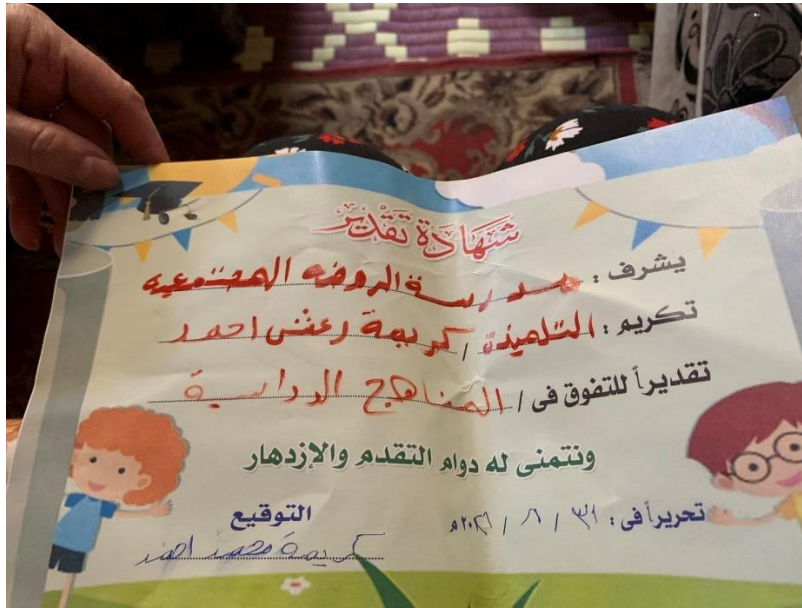 شهادة تقدير
يشرف : مدرسة الروضه المجتمعيه
تكريم : التلميذة / كريمة احمد
تقديراً للتفوق فى / المناهج الدراسية
ونتمنى له دوام التقدم والإزدهار
تحريراً فى : ٣١ / ٨ /
التوقيع
كريمة محمد احمد